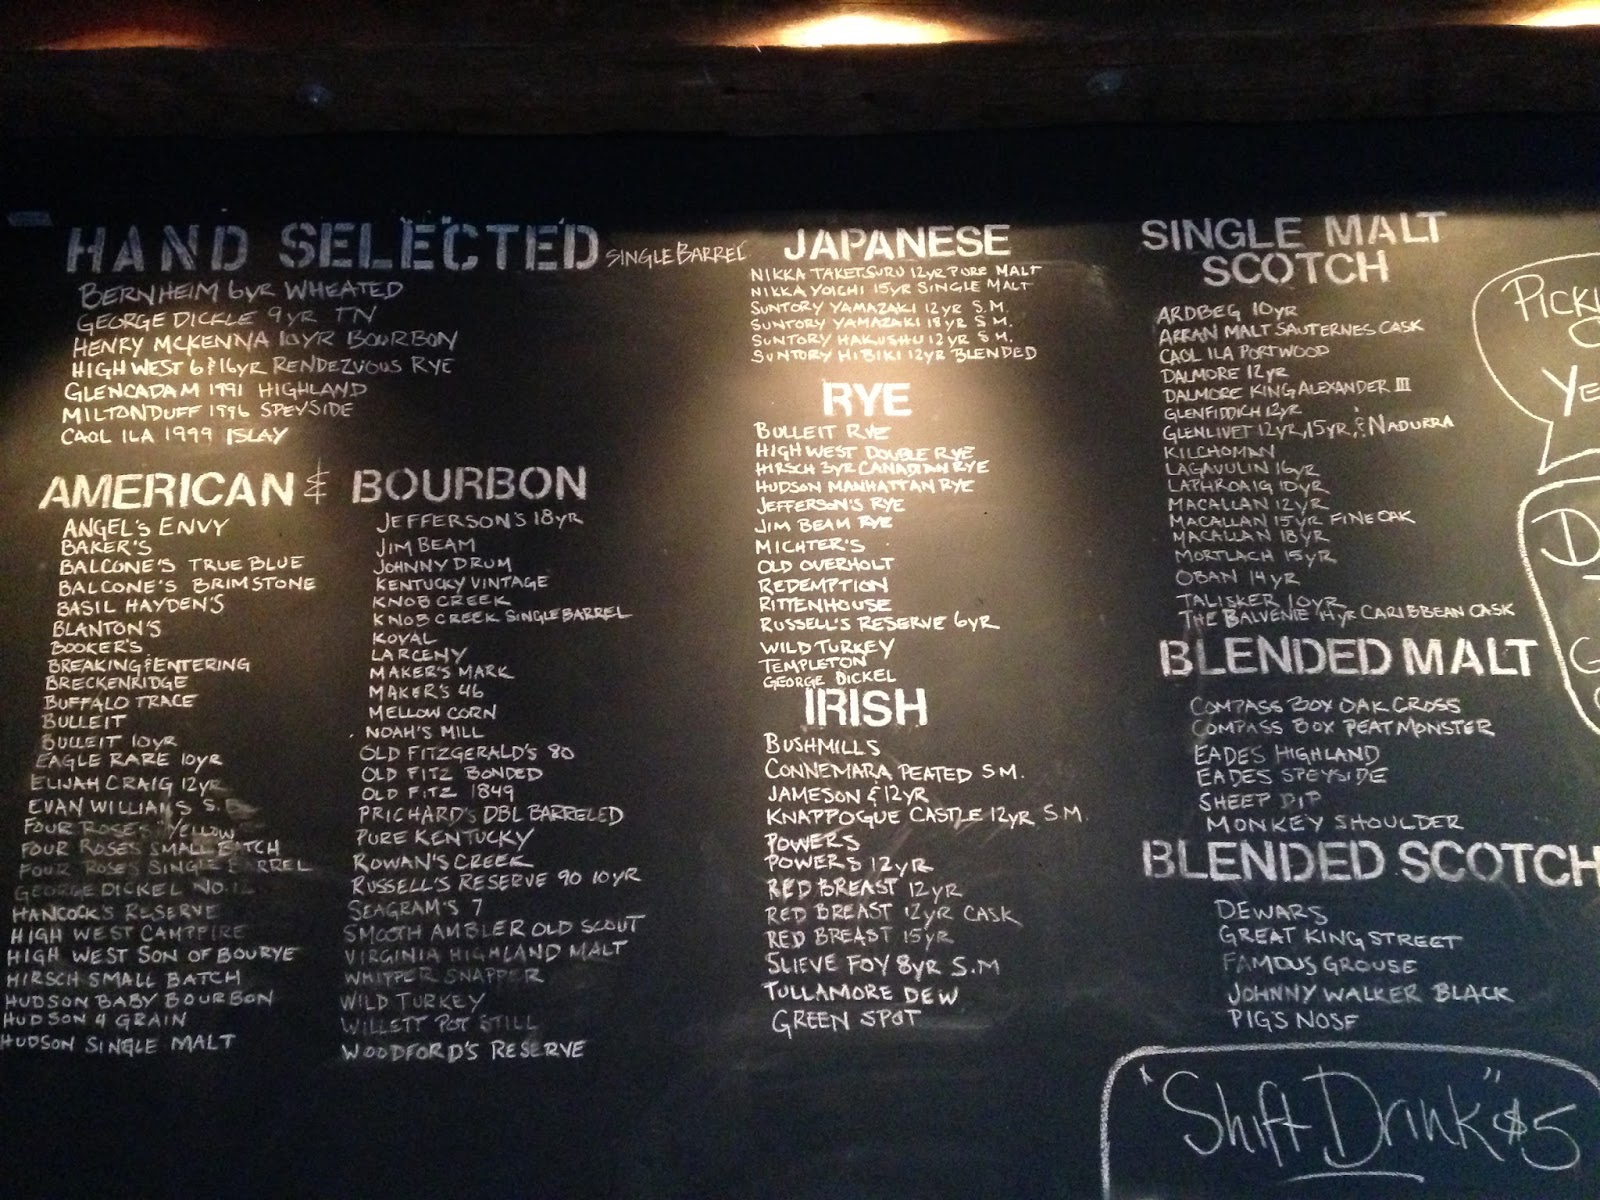 HAND SELECTED SINGLE BARREL
BERNHEIM 6YR WHEATED
GEORGE DICKLE 9YR TN
HENRY MCKENNA 10YR BOURBON
HIGH WEST 6 & 16YR RENDEZVOUS RYE
GLENCADAM 1991 HIGHLAND
MILTONDUFF 1996 SPEYSIDE
CAOL ILA 1999 ISLAY
AMERICAN & BOURBON
ANGEL'S ENVY
BAKER'S
BALCONE'S TRUE BLUE
BALCONE'S BRIMSTONE
BASIL HAYDEN'S
BLANTON'S
BOOKER'S
BREAKING & ENTERING
BRECKENRIDGE
BUFFALO TRACE
BULLEIT
BULLEIT 10YR
EAGLE RARE 10YR
ELIJAH CRAIG 12YR
EVAN WILLIAMS S.B
FOUR ROSES YELLOW
FOUR ROSES SMALL BATCH
FOUR ROSES SINGLE BARREL
GEORGE DICKEL NO.12
HANCOCK'S RESERVE
HIGH WEST CAMPFIRE
HIGH WEST SON OF BOURYE
HIRSCH SMALL BATCH
HUDSON BABY BOURBON
HUDSON 4 GRAIN
HUDSON SINGLE MALT
JEFFERSON'S 18YR
JIM BEAM
JOHNNY DRUM
KENTUCKY VINTAGE
KNOB CREEK
KNOB CREEK SINGLE BARREL
KOVAL
LARCENY
MAKER'S MARK
MAKER'S 46
MELLOW CORN
NOAH'S MILL
OLD FITZGERALD'S 80
OLD FITZ BONDED
OLD FITZ 1849
PRICHARD'S DBL BARRELED
PURE KENTUCKY
ROWAN'S CREEK
RUSSELL'S RESERVE 90 10YR
SEAGRAM'S 7
SMOOTH AMBLER OLD SCOUT
VIRGINIA HIGHLAND MALT
WHIPPER SNAPPER
WILD TURKEY
WILLETT POT STILL
WOODFORD'S RESERVE
JAPANESE
NIKKA TAKETSURU 12YR PURE MALT
NIKKA YOICHI 15YR SINGLE MALT
SUNTORY YAMAZAKI 12YR S.M.
SUNTORY YAMAZAKI 18YR S.M.
SUNTORY HAKUSHU 12YR S.M.
SUNTORY HIBIKI 12YR BLENDED
RYE
BULLEIT RYE
HIGH WEST DOUBLE RYE
HIRSCH 3YR CANADIAN RYE
HUDSON MANHATTAN RYE
JEFFERSON'S RYE
JIM BEAM RYE
MICHTER'S
OLD OVERHOLT
REDEMPTION
RITTENHOUSE
RUSSELL'S RESERVE 6YR
WILD TURKEY
TEMPLETON
GEORGE DICKEL
IRISH
BUSHMILLS
CONNEMARA PEATED S.M.
JAMESON & 12YR
KNAPPOGUE CASTLE 12YR S.M.
POWERS
POWERS 12YR
RED BREAST 12YR
RED BREAST 12YR CASK
RED BREAST 15YR
SLIEVE FOY 8YR S.M
TULLAMORE DEW
GREEN SPOT
SINGLE MALT
SCOTCH
ARDBEG 10YR
ARRAN MALT SAUTERNES CASK
CAOL ILA PORTWOOD
DALMORE 12YR
DALMORE KING ALEXANDER III
GLENFIDDICH 12YR
GLENLIVET 12YR, 15YR & NADURRA
KILCHOMAN
LAGAVULIN 16YR
LAPHROAIG 10YR
MACALLAN 12YR
MACALLAN 15YR FINE OAK
MACALLAN 18YR
MORTLACH 15YR
OBAN 14YR
TALISKER 10YR
THE BALVENIE 14YR CARIBBEAN CASK
BLENDED MALT
COMPASS BOX OAK CROSS
COMPASS BOX PEAT MONSTER
EADES HIGHLAND
EADES SPEYSIDE
SHEEP DIP
MONKEY SHOULDER
BLENDED SCOTCH
DEWARS
GREAT KING STREET
FAMOUS GROUSE
JOHNNY WALKER BLACK
PIG'S NOSE
"Shift Drink" $5